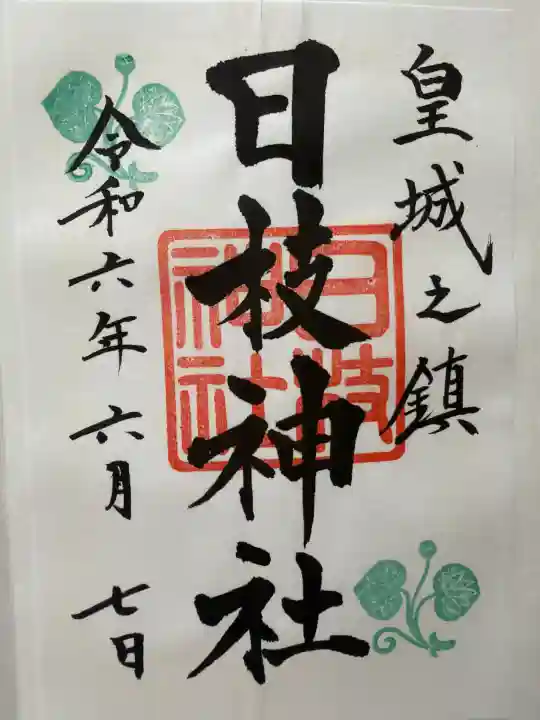 皇城之鎮
日枝神社
日枝
神社
令和六年六月七日